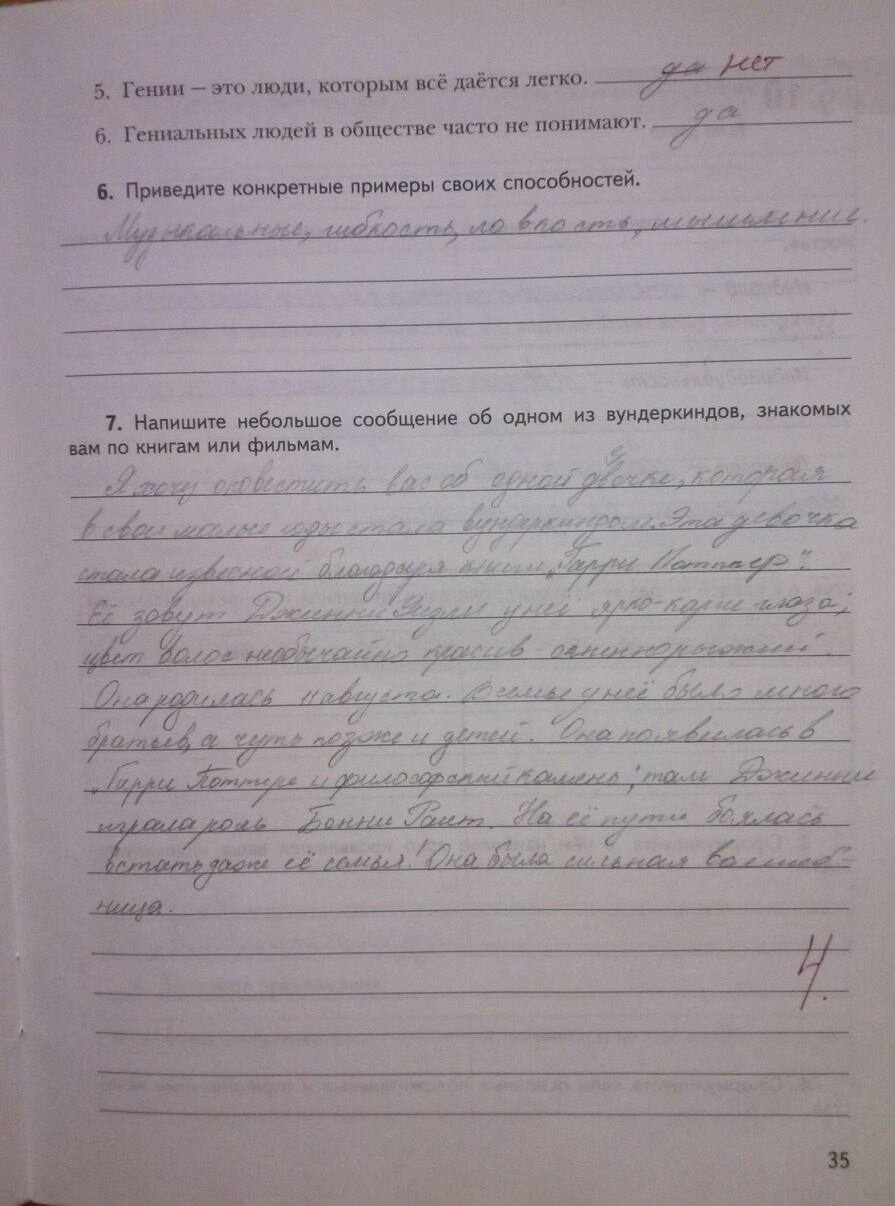 5. Гении — это люди, которым всё даётся легко. да нет
6. Гениальных людей в обществе часто не понимают. да
6. Приведите конкретные примеры своих способностей.
Музыкальные, гибкость, ловкость, мышление.
7. Напишите небольшое сообщение об одном из вундеркиндов, знакомых
вам по книгам или фильмам.
Я хочу оповестить вас об одной девочке, которая
в свои малые годы стала вундеркиндом. Эта девочка
стала извесной благодаря книги „Гарри Поттер".
Её зовут Джинни Уизли у неё ярко-карие глаза,
цвет волос необычайно красив - огненнорыжий.
Она родилась 11 августа. В семье у неё было много
братьев, а чуть позже и детей. Она появилась в
„Гарри Поттере и философский камень", там Джинни
играла роль Бонни Раит. На её пути боялась
встать даже её семья! Она была сильная волшеб-
ница.
4.
35